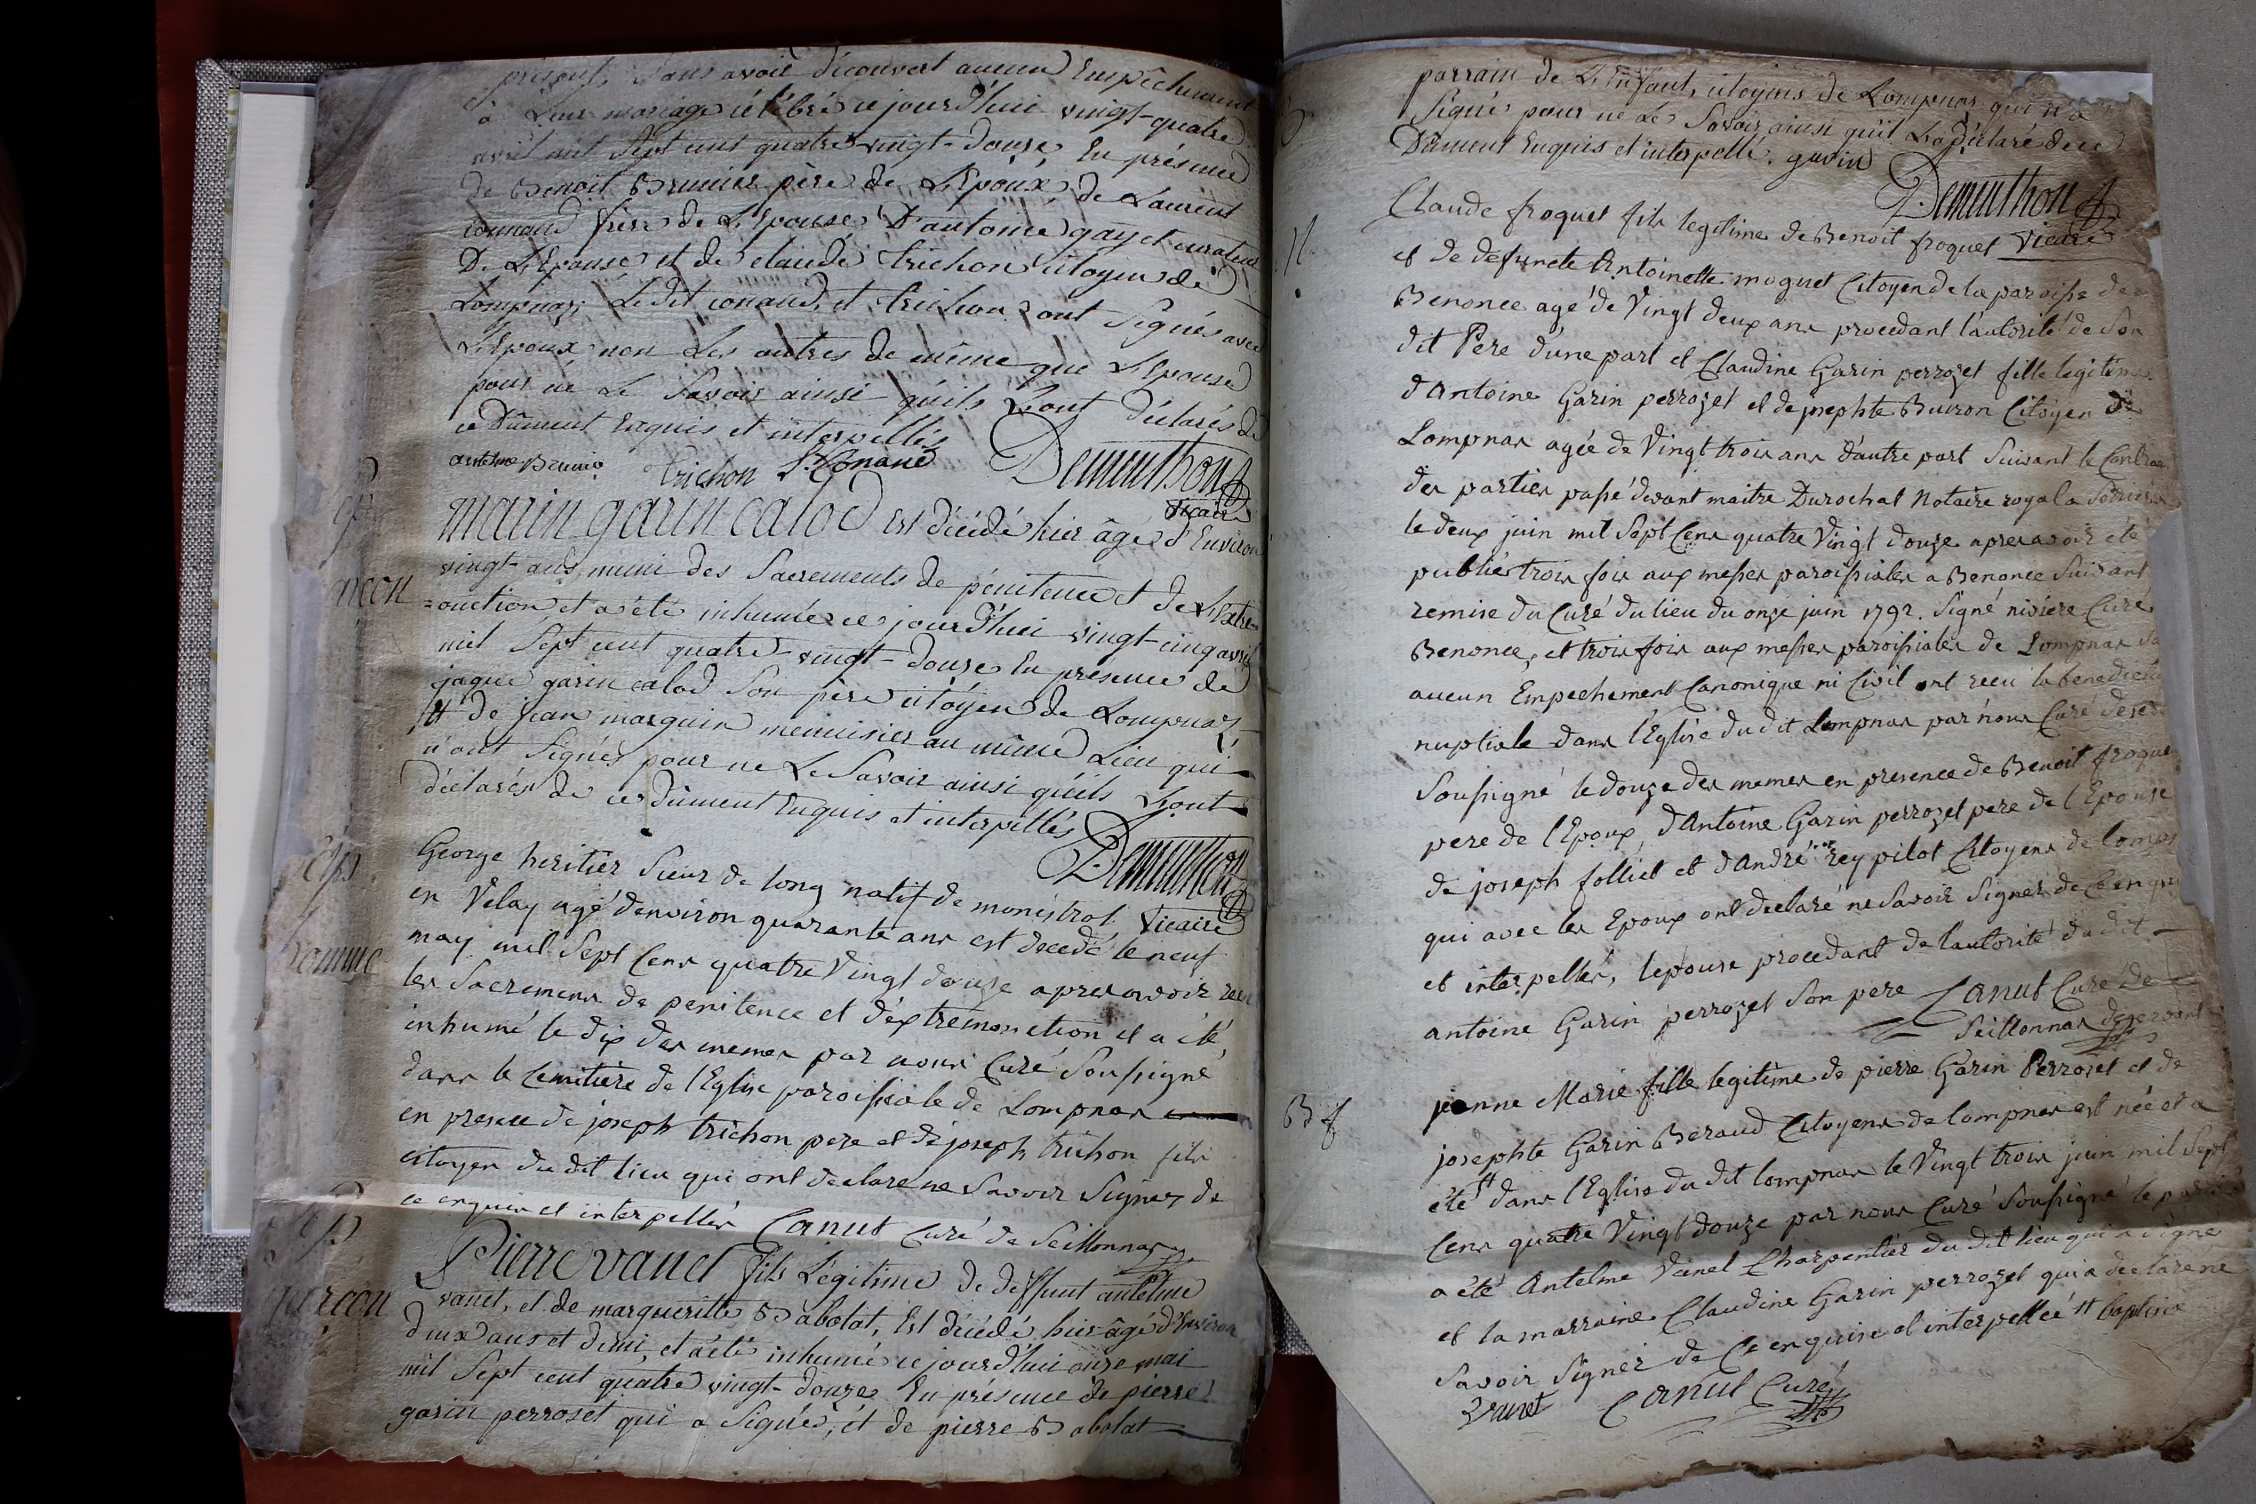 présents, sans avoir découvert aucun Empêchement
à Leur mariage célébré ce jourd'hui vingt-quatre
avril mil sept cent quatre-vingt-douze, En présence
de Benoît Brunier père de L'Epoux, de Laurent
conand frère de L'Epouse, D'antoine gay curateur
De L'Epouse et de claude trichon citoyen de
Lompnaz; Ledit conand, et trichon ont signés avec
L'Epoux non Les autres de même que L'Epouse
pour ne Le Savoir ainsi qu'ils L'ont déclarés de
ce Dûment Enquis et interpellés
trichon L. Conand Demunthon
Vicaire
marin garin calod Est décédé hier âgé d'Environ
vingt-ans, muni des Sacrements de pénitence et de L'Extrê-
=onction et a été inhumé ce jourd'hui vingt-cinq avril
mil Sept cent quatre-vingt-douze En présence de
jaque garin calod Son père citoyen de Lompnaz
et de jean marguin menuisier au même Lieu qui
n'ont Signés pour ne Le Savoir ainsi qu'ils L'ont
déclarés de ce dûment Enquis et interpellés
Demunthon
Vicaire
George heritier Sieur de long natif de monistrol
en Velay agé denviron quarante ans est decedé le neuf
may mil Sept Cens quatre Vingt douze apres avoir reçu
les Sacremens de penitence et d'extremonction et a été
inhumé le dix des memes par nous Curé Soussigné
dans le Cemitiere de l'Eglise paroissiale de Lompnas
en presence de joseph trichon pere et de joseph trichon fils
citoyen du dit lieu qui ont declare ne Savoir Signer de
ce enquis et interpellés Canut Curé de Seillonnas
Pierre vanel fils Légitime de deffunt antelme
vanel, et de margueritte Babolat, Est décédé hier âgé d'Environ
deux ans et demi, et a été inhumé ce jourd'hui onze mai
mil Sept cent quatre vingt-douze En présence de pierre
garin perroset qui a Signé, et de pierre Babolat
garçon
homme
garçon
parrain de L'Enfant, citoyens de Lompnas qui n'a
Signé pour ne Le Savoir ainsi qu'il L'a Déclaré de ce
Dûment Enquis et interpellé. gavin
Demunthon
Vicaire
Claude froquet fils legitime de Benoit froquet
et de defuncte Antoinette moguet Citoyen de la paroisse de
Benonce agé de Vingt deux ans procedant l'autorité de Son
dit Pere d'une part et Claudine Garin perrozet fille legitime
d'Antoine Garin perrozet et de josephte Buiron Citoyen de
Lompnas agée de Vingt trois ans d'autre part Suivant le Contrat
des parties passé devant maitre Durochat Notaire royal a
le deux juin mil Sept Cens quatre Vingt douze apres avoir été
publiés trois fois aux messes paroissiales a Benonce Suivant
remise du Curé du lieu du onze juin 1792. Signé niviere Curé
Benonce, et trois fois aux messes paroissiales de Lompnas
aucun Empechement Canonique ni Civil ont recu la
nuptiale dans l'Eglise du dit Lompnas par nous Curé
Soussigné le douze des memes en presence de Benoit froquet
pere de l'Epoux, d'Antoine Garin perrozet pere de l'Epouse
de joseph folliet et d'André rey pilot Citoyens de
qui avec les Epoux ont declaré ne Savoir Signer de Ce
et interpellés, l'epouse procedant de l'autorité du dit
antoine Garin perrozet Son pere Canut Curé de
Seillonnas desservant
B f
jeanne Marie fille legitime de pierre Garin Perrozet et de
josephte Garin Beraud Citoyens de lompnas est née et a
été tt dans l'Eglise du dit lompnas le Vingt trois juin mil Sept
Cens quatre Vingt douze par nous Curé Soussigné le parrain
a été Antelme Vanel Charpentier du dit lieu qui a Signé
et la marraine Claudine Garin perrozet qui a declaré ne
Savoir Signer de Ce enquise et interpellée tt baptisée
Vanel Canut Curé